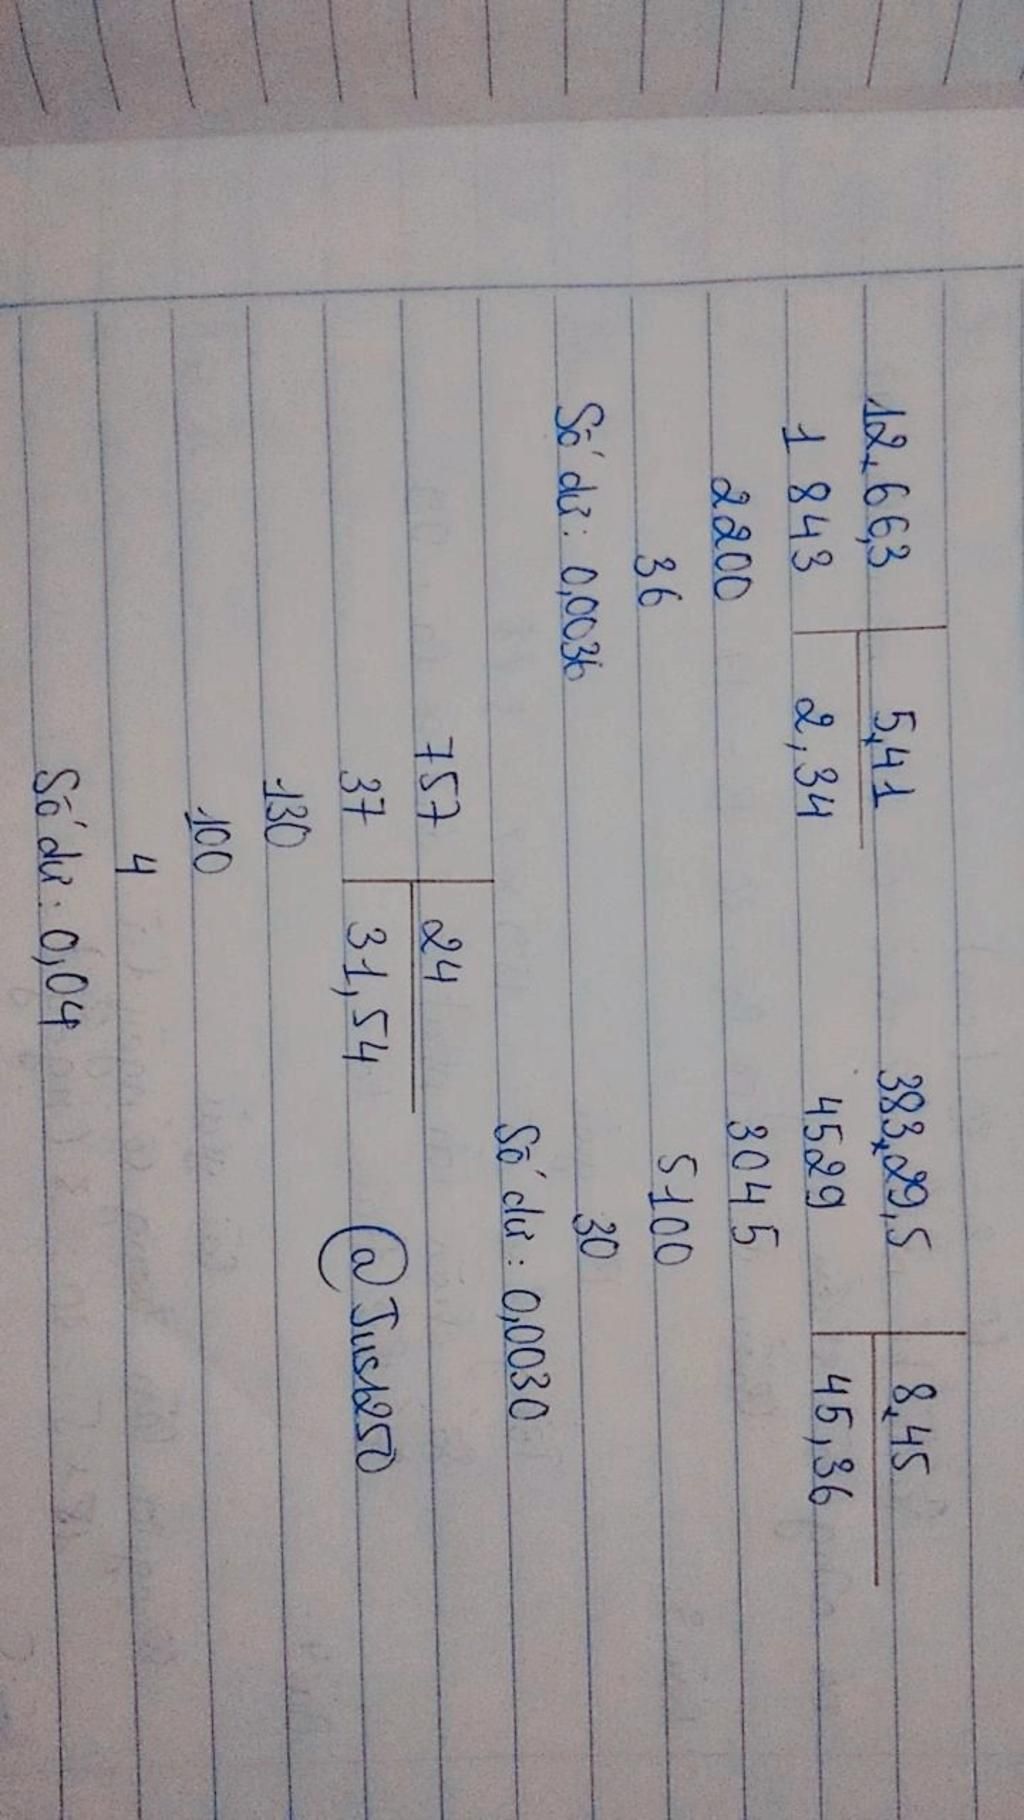 12,66,3 5,41
1 843 2,34
2200
36
Số dư: 0,0036
383,29,5 8,45
4529 45,36
3045
5100
30
Số dư: 0,0030
757 24
37 31,54
130
100
4
Số dư: 0,04
@Just250